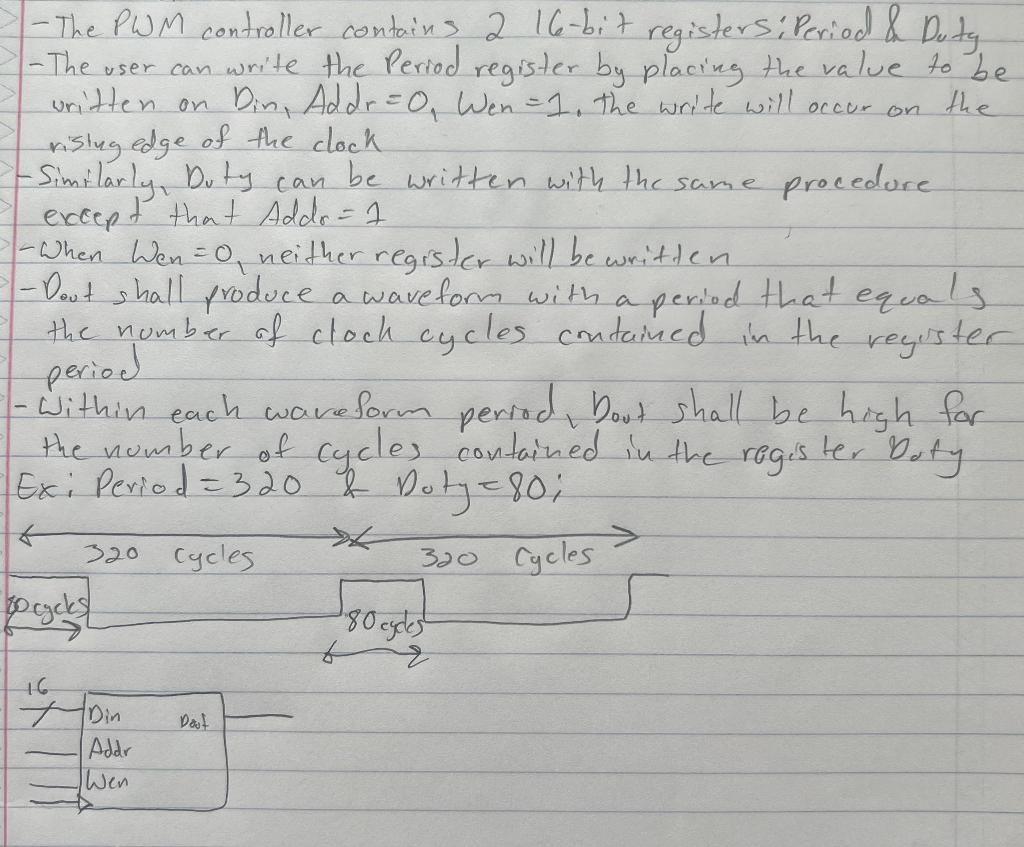 - The PWM controller contains 2 16-bit registers: Period & Duty
- The user can write the Period register by placing the value to be
written on Din, Addr = 0, Wen = 1. The write will occur on the
rising edge of the clock
- Similarly, Duty can be written with the same procedure
except that Addr = 1
- When Wen = 0, neither register will be written
- Dout shall produce a waveform with a period that equals
the number of clock cycles contained in the register
period
- Within each waveform period, Dout shall be high for
the number of cycles contained in the register Duty
Ex: Period = 320 & Duty = 80:
320 cycles 320 cycles
80 cycles 80 cycles
16
Din Dout
Addr
Wen